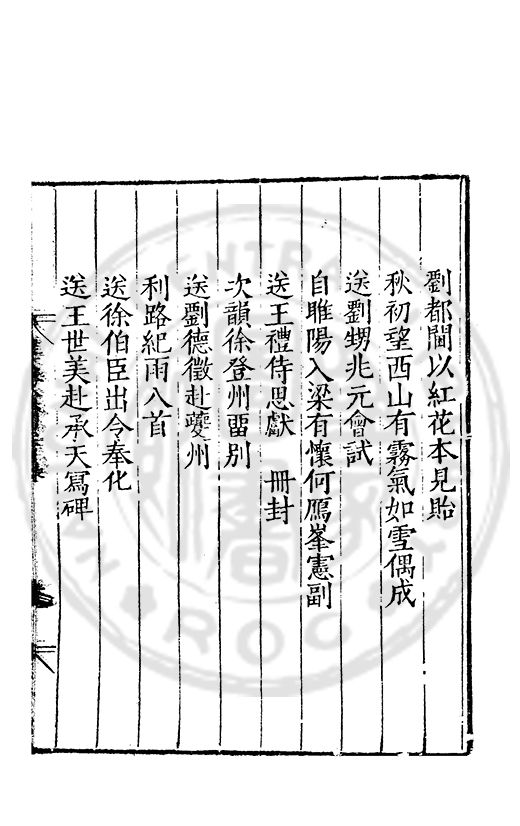 劉都閫以紅花本見貽
秋初望西山有霧氣如雪偶成
送劉甥兆元會試
自睢陽入梁有懷何鴈峯憲副
送王禮侍思獻　冊封
次韻徐登州畱別
送劉德徵赴夔州
利路紀雨八首
送徐伯臣出令奉化
送王世美赴承天寫碑